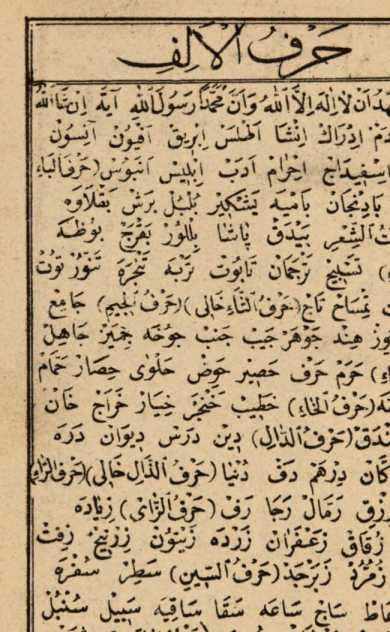 حَرْفُ الْاَلِفِ
هَدُ اَنْ لَا اِلٰهَ اِلَّا اللهُ وَاَنَّ مُحَمَّدًا رَسُولُ اللهِ آيَهْ اِنْ شَآءَ اللهُ
دَمْ اِدْرَاكْ اِنْشَا اَطْلَسْ اِبْرِيقْ اَفْيُونْ آنِسُونْ
اِسْفِيدَاجْ اِحْرَامْ اَدَبْ اِبْلِيسْ اَبَنُوسْ (حَرْفُ الْبَاءِ
بَادِنْجَانْ بَامْيَهْ بَشْكِيرْ بُلْبُلْ بَرَشْ بَقْلَاوَهْ
تُ الشِّعْرِ بَيْدَقْ پَاشَا بِلَّوْرْ بُوظَهْ
تَسْبِيحْ تَرْجُمَانْ تَابُوتْ تُرْبَهْ تَنُّورْ تُوتْ
تِمْسَاحْ تَاجْ (حَرْفُ الثَّاءِ خَالِى) (حَرْفُ الْجِيمِ) جَامِعْ
وْزْ هِنْدْ جَوْهَرْ جَيْبْ جَنْبْ جُوخَهْ جُمَّيْزْ جَاهِلْ
ءِ) حَرَمْ حَرْفْ حَصِيرْ حَوْضْ حَلْوٰى حِصَارْ حَمَّامْ
(حَرْفُ الْخَاءِ) خَطِيبْ خَنْجَرْ خِيَارْ خَرَاجْ خَانْ
نْدَقْ (حَرْفُ الدَّالِ) دِينْ دَرْسْ دِيوَانْ دَرَهْ
كَّانْ دِرْهَمْ دَفْ دُنْيَا (حَرْفُ الذَّالِ خَالِى) (حَرْفُ الرَّاءِ
رِزْقْ رَمَّالْ رَجَا رَفْ (حَرْفُ الزَّاىِ) زِيَادَهْ
زُقَاقْ زَعْفَرَانْ زَرْدَهْ زَيْتُونْ زِرْنِيخْ زِفْتْ
زُمُرُّدْ زَبَرْجَدْ (حَرْفُ السِّينِ) سَطِرْ سُفْرَهْ
اطْ سَاجْ سَاعَهْ سَقَّا سَاقِيَهْ سَبِيلْ سُنْبُلْ